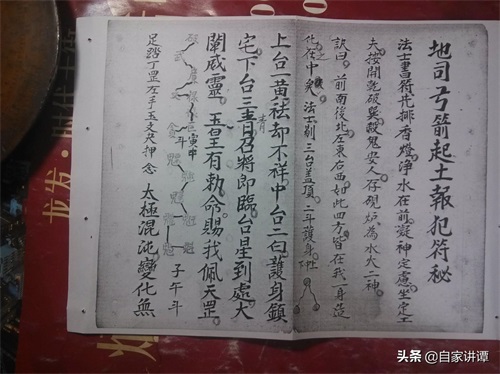 地司弓箭起土報犯符秘
法士書符先排香燈淨水在前凝神定慮坐定工
夫按開乾破巽殺鬼安人存硯炉為水火二神
訣曰 前南後北左東右西如此四方皆在我一身造
化在中矣 法士剔三台蓋頂 二年護身
上台一黃祛却不祥中台二白護身鎮
宅下台三青召將即臨台星到處大
闡威靈 玉皇有勅命賜我佩天罡
寅申
斗
子午斗
足踏丁罡左手玉文尺押念 太極混沌變化無
龙发·时代
头条 @自家讲谭